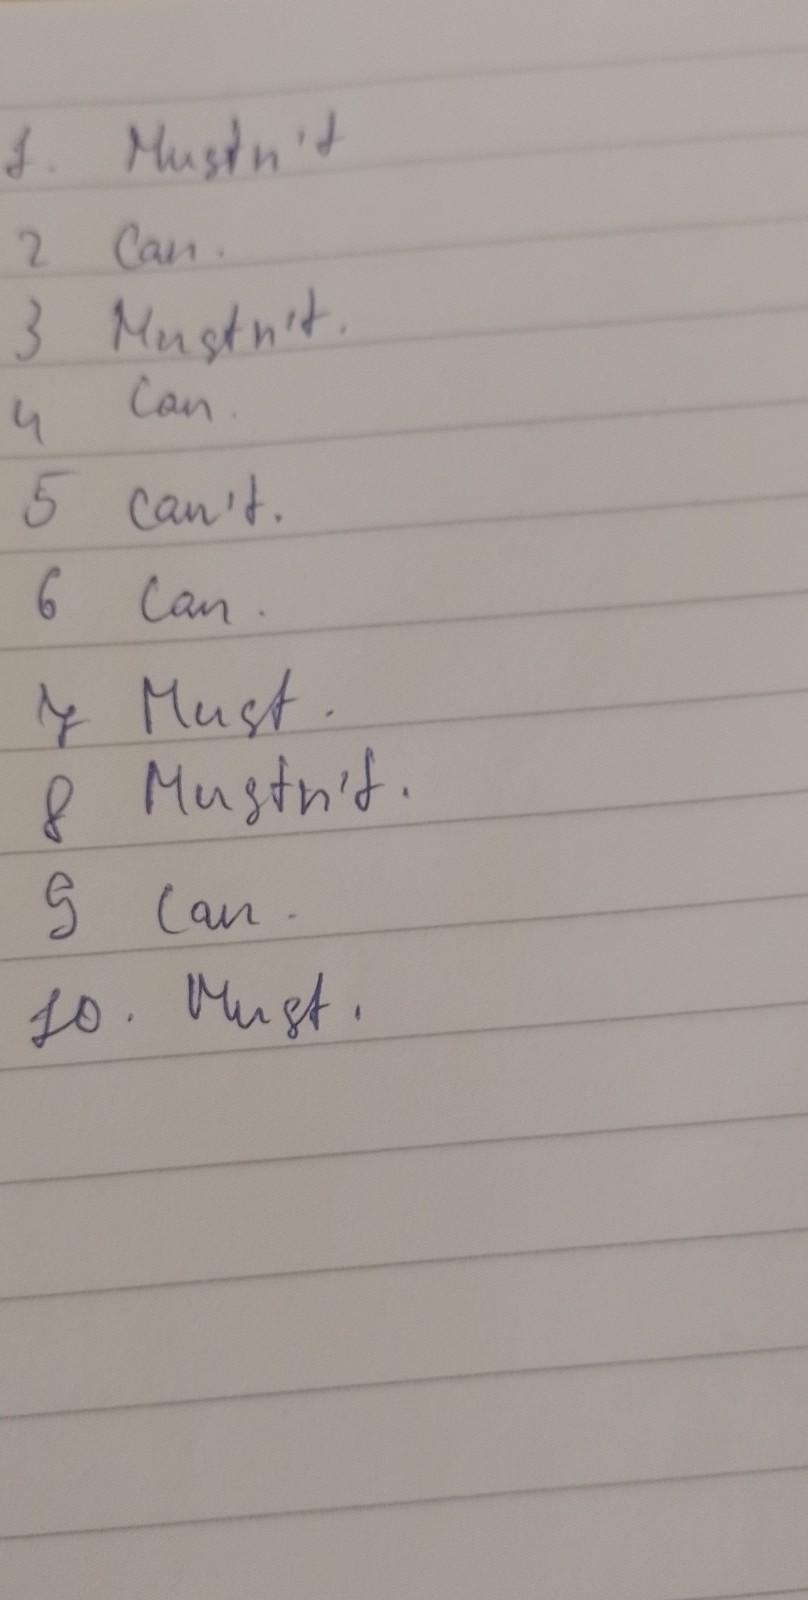 1. Mustn't
2 Can.
3 Mustn't.
4 Can.
5 can't.
6 Can.
7 Must.
8 Mustn't.
9 Can.
10. Must.